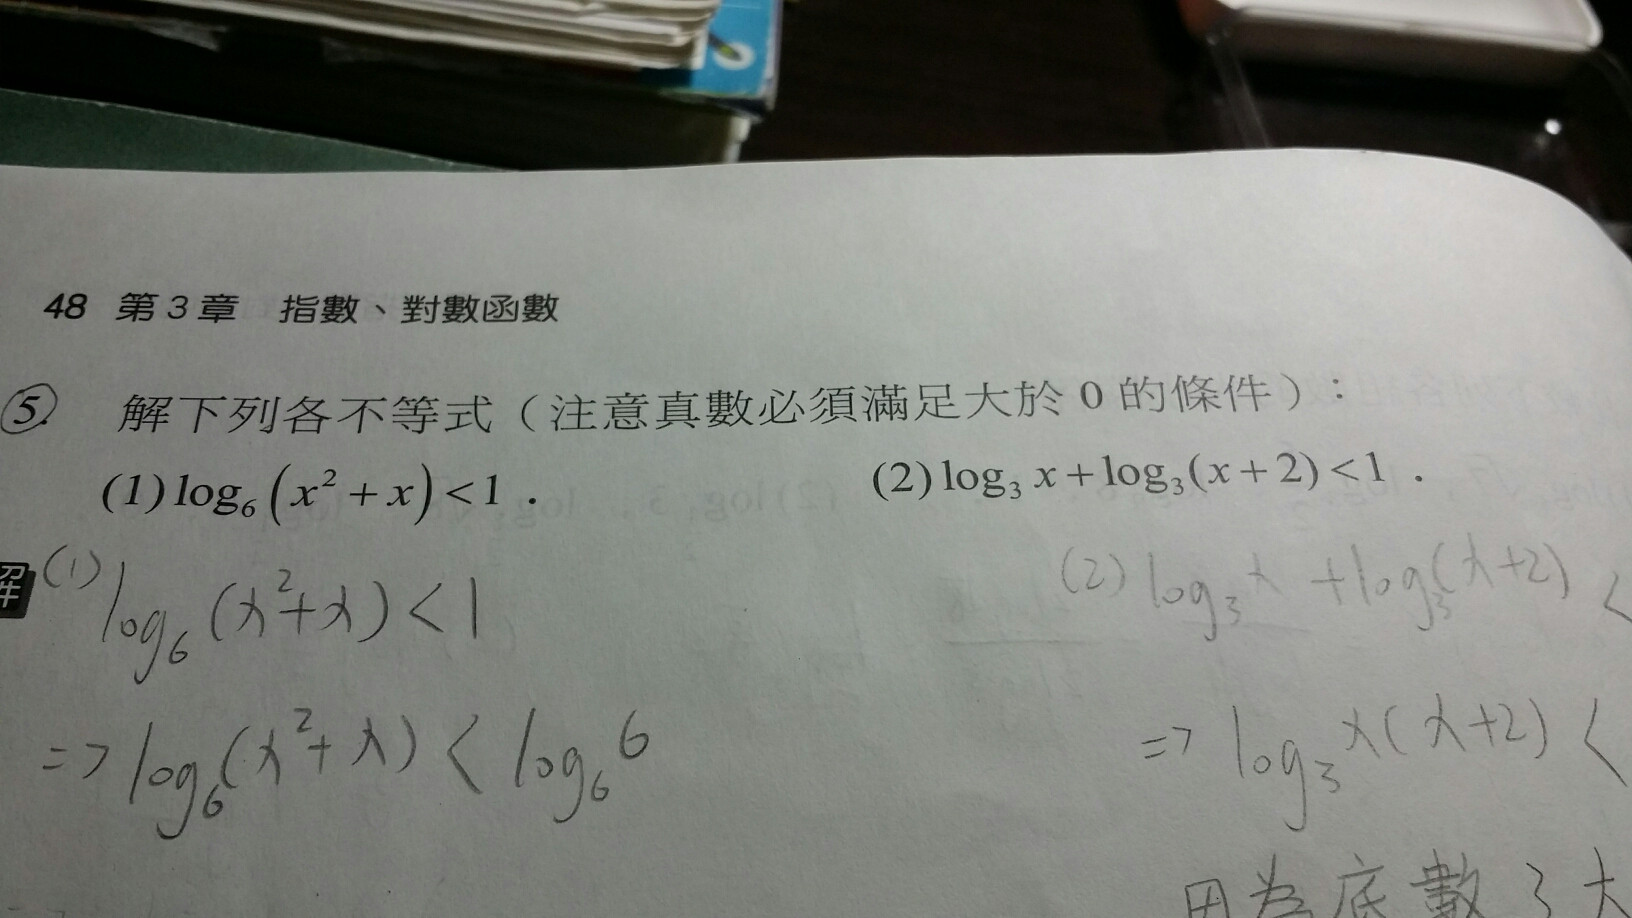 48 第3章 指數、對數函數
5. 解下列各不等式（注意真數必須滿足大於 0 的條件）：
(1) log₆(x² + x) < 1 . (2) log₃ x + log₃(x + 2) < 1 .
解 (1) log₆(x²+x) < 1
(2) log₃x + log₃(x+2) <
=> log₆(x²+x) < log₆6
=> log₃x(x+2) <
因為底數3大